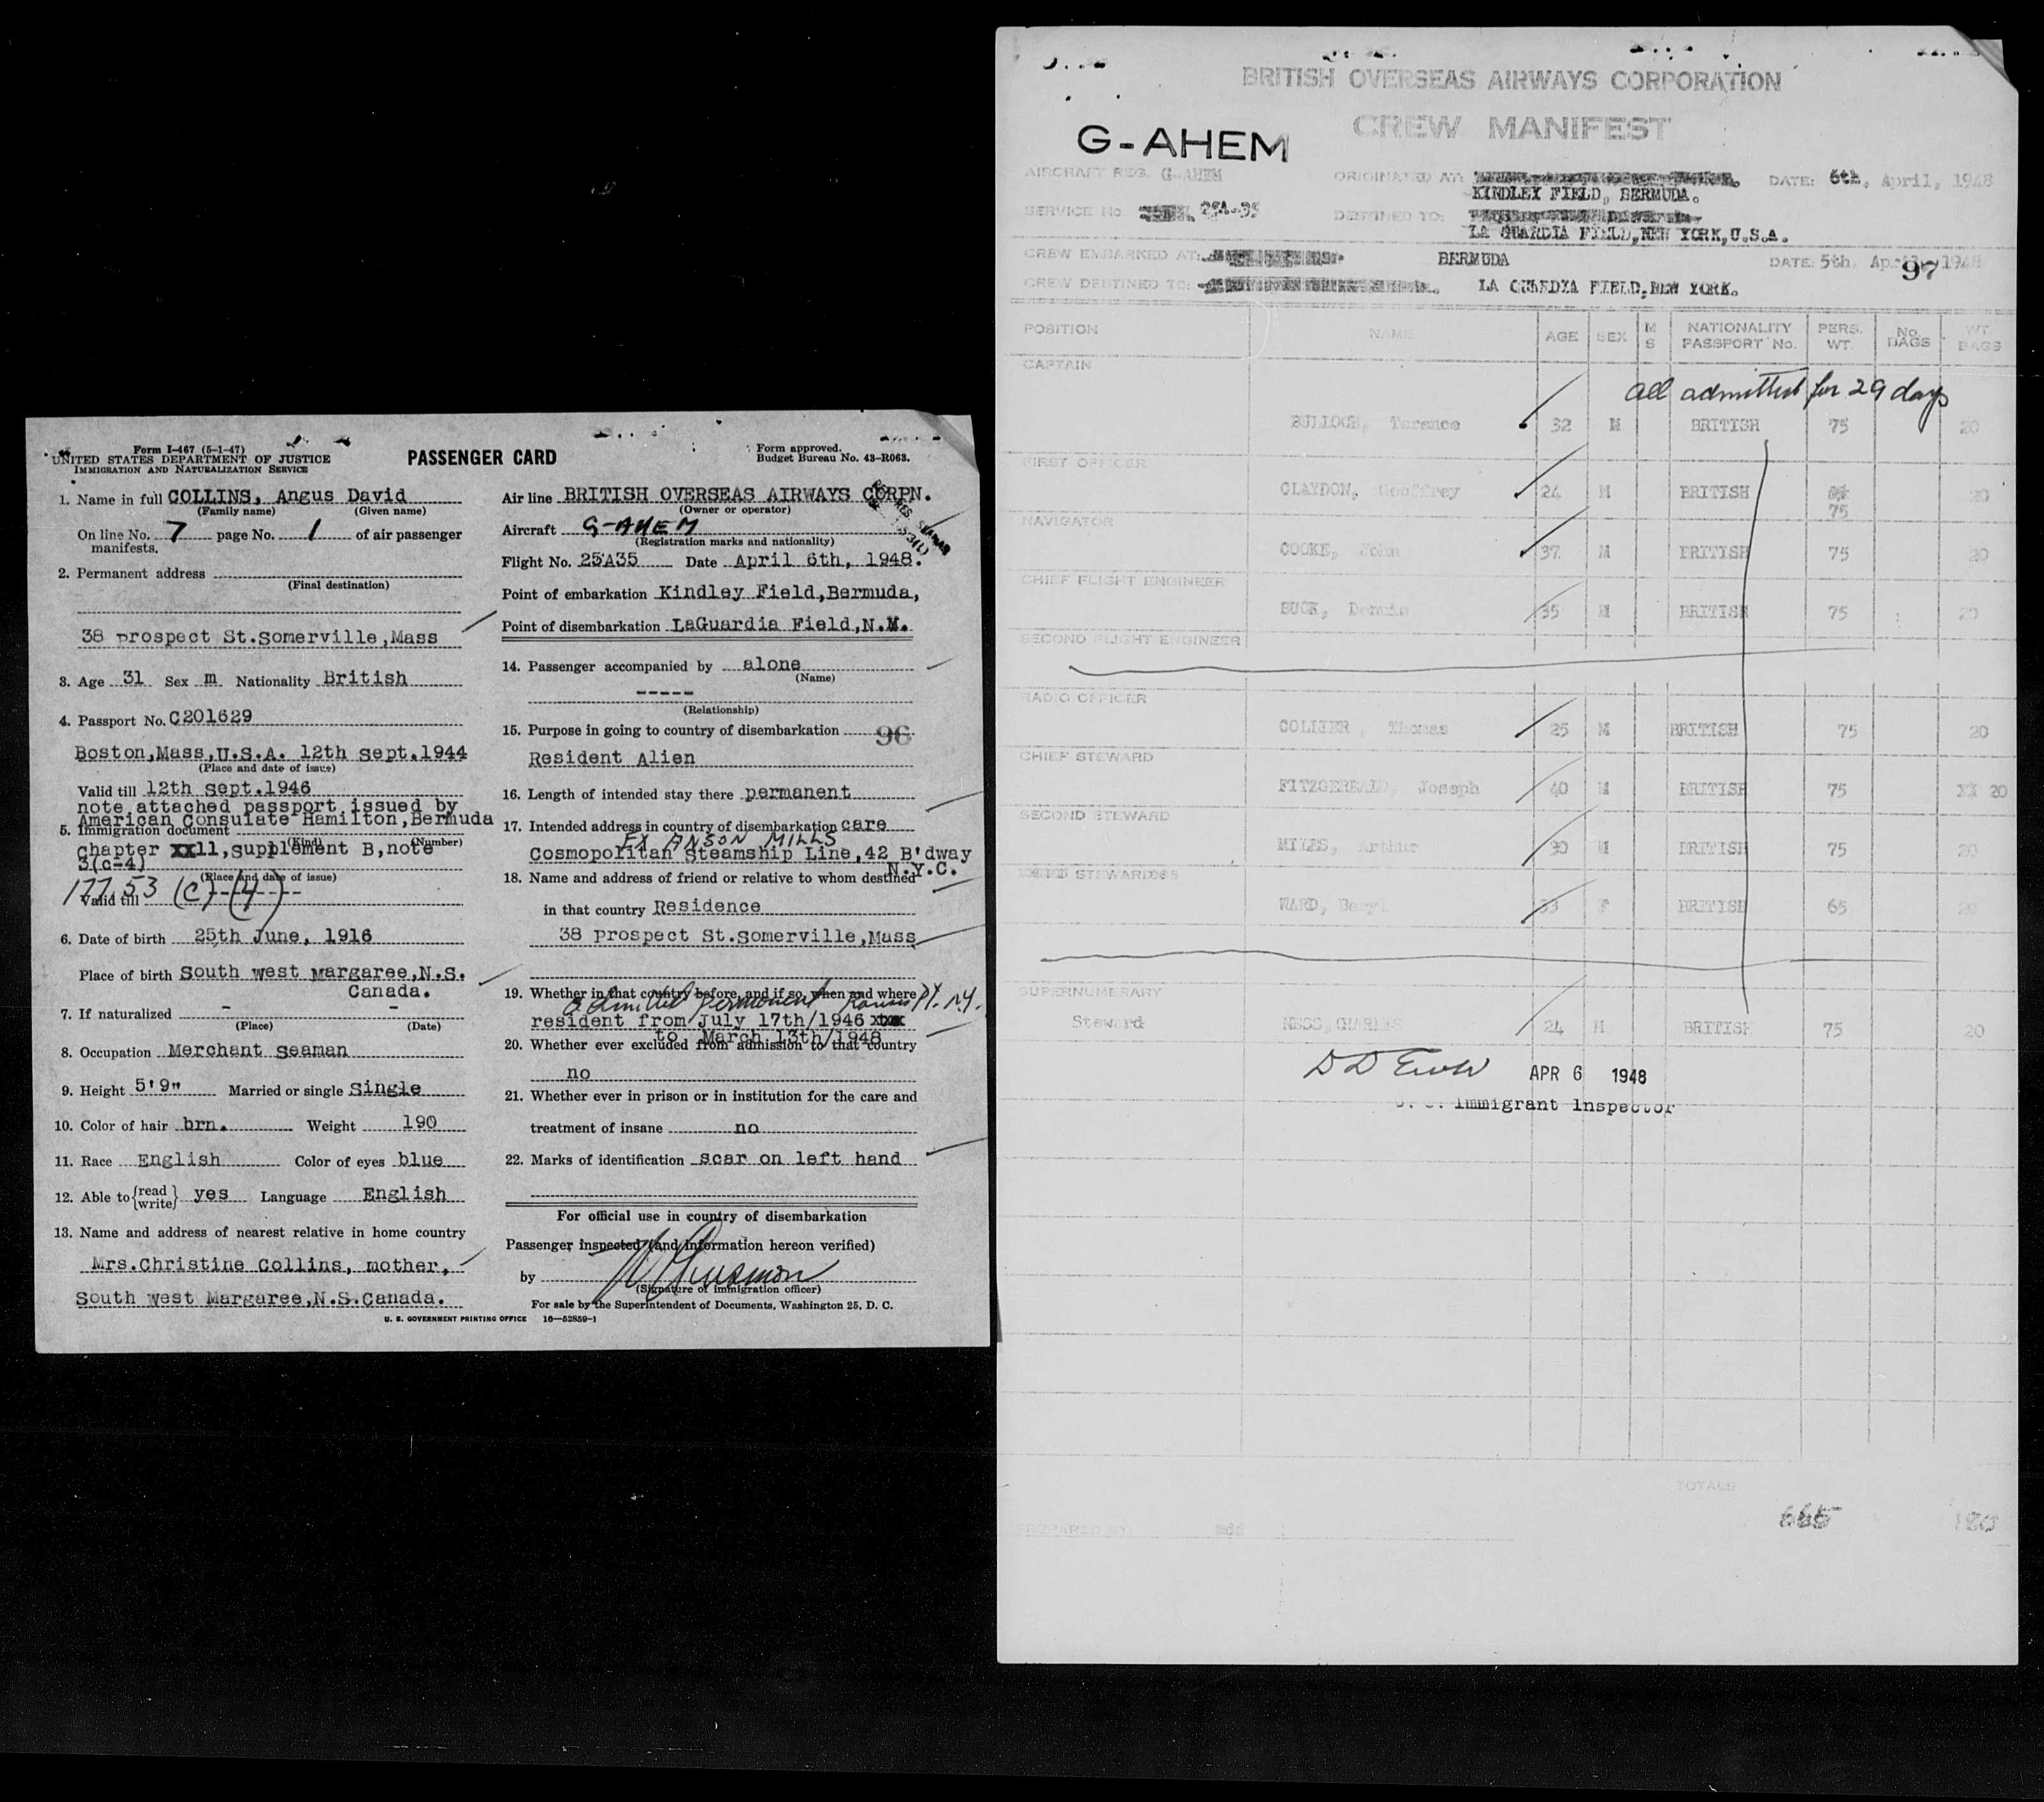 Form I-467 (5-1-47)
UNITED STATES DEPARTMENT OF JUSTICE
IMMIGRATION AND NATURALIZATION SERVICE
PASSENGER CARD
Form approved.
Budget Bureau No. 43-R063.
1. Name in full COLLINS, Angus David
(Family name) (Given name)
On line No. 7 page No. 1 of air passenger
manifests.
2. Permanent address
(Final destination)
38 prospect St.Somerville,Mass
3. Age 31 Sex m Nationality British
4. Passport No. C201629
Boston,Mass,U.S.A. 12th Sept.1944
(Place and date of issue)
Valid till 12th Sept.1946
note attached passport issued by
American Consulate Hamilton,Bermuda
5. Immigration document
(Kind) (Number)
Chapter xx11,supplement B,note
3(c-4)
(Place and date of issue)
177.53 (C)-(4)
Valid till
6. Date of birth 25th June, 1916
Place of birth South west Margaree,N.S.
Canada.
7. If naturalized - -
(Place) (Date)
8. Occupation Merchant seaman
9. Height 5'9" Married or single Single
10. Color of hair brn. Weight 190
11. Race English Color of eyes blue
12. Able to {read write} yes Language English
13. Name and address of nearest relative in home country
Mrs.Christine Collins, mother,
South west Margaree,N.S.Canada.
Air line BRITISH OVERSEAS AIRWAYS CORPN.
(Owner or operator)
Aircraft G-AHEM
(Registration marks and nationality)
Flight No. 25A35 Date April 6th, 1948.
Point of embarkation Kindley Field,Bermuda,
Point of disembarkation LaGuardia Field,N.Y.
14. Passenger accompanied by alone
(Name)
-----
(Relationship)
15. Purpose in going to country of disembarkation
96
Resident Alien
16. Length of intended stay there permanent
17. Intended address in country of disembarkation care
EX ANSON MILLS
Cosmopolitan Steamship Line,42 B'dway
N.Y.C.
18. Name and address of friend or relative to whom destined
in that country Residence
38 prospect St.Somerville,Mass
19. Whether in that country before, and if so, when and where
admitted permanent
resident from July 17th/1946
to March 13th/1948
20. Whether ever excluded from admission to that country
no
21. Whether ever in prison or in institution for the care and
treatment of insane no
22. Marks of identification scar on left hand
For official use in country of disembarkation
Passenger inspected (and information hereon verified)
by
(Signature of immigration officer)
For sale by the Superintendent of Documents, Washington 25, D. C.
U. S. GOVERNMENT PRINTING OFFICE 16—52859-1
BRITISH OVERSEAS AIRWAYS CORPORATION
CREW MANIFEST
G-AHEM
AIRCRAFT REG. G-AHEM ORIGINATED AT: DATE: 6th, April, 1948
KINDLEY FIELD, BERMUDA.
SERVICE No 25A-35 DESTINED TO:
LA GUARDIA FIELD,NEW YORK,U.S.A.
CREW EMBARKED AT: BERMUDA DATE: 5th April 1948
97
CREW DESTINED TO: LA GUARDIA FIELD,NEW YORK.
POSITION NAME AGE SEX M S NATIONALITY PASSPORT No. PERS. WT. No. BAGS WT BAGS
CAPTAIN
All admitted for 29 days
BULLOCH, Terence 32 M BRITISH 75 20
FIRST OFFICER
CLAYDON, Geoffrey 24 M BRITISH 75 20
NAVIGATOR
COOKE, John 37 M BRITISH 75 20
CHIEF FLIGHT ENGINEER
BUCK, Dennis 35 M BRITISH 75 20
SECOND FLIGHT ENGINEER
RADIO OFFICER
COLLIER, Thomas 25 M BRITISH 75 20
CHIEF STEWARD
FITZGERALD, Joseph 40 M BRITISH 75 20
SECOND STEWARD
MILES, Arthur 30 M BRITISH 75 20
STEWARDESS
WARD, Beryl 33 F BRITISH 65 20
SUPERNUMERARY
Steward NESS, CHARLES 24 M BRITISH 75 20
APR 6 1948
Immigrant Inspector
TOTALS
665 180
PREPARED BY: